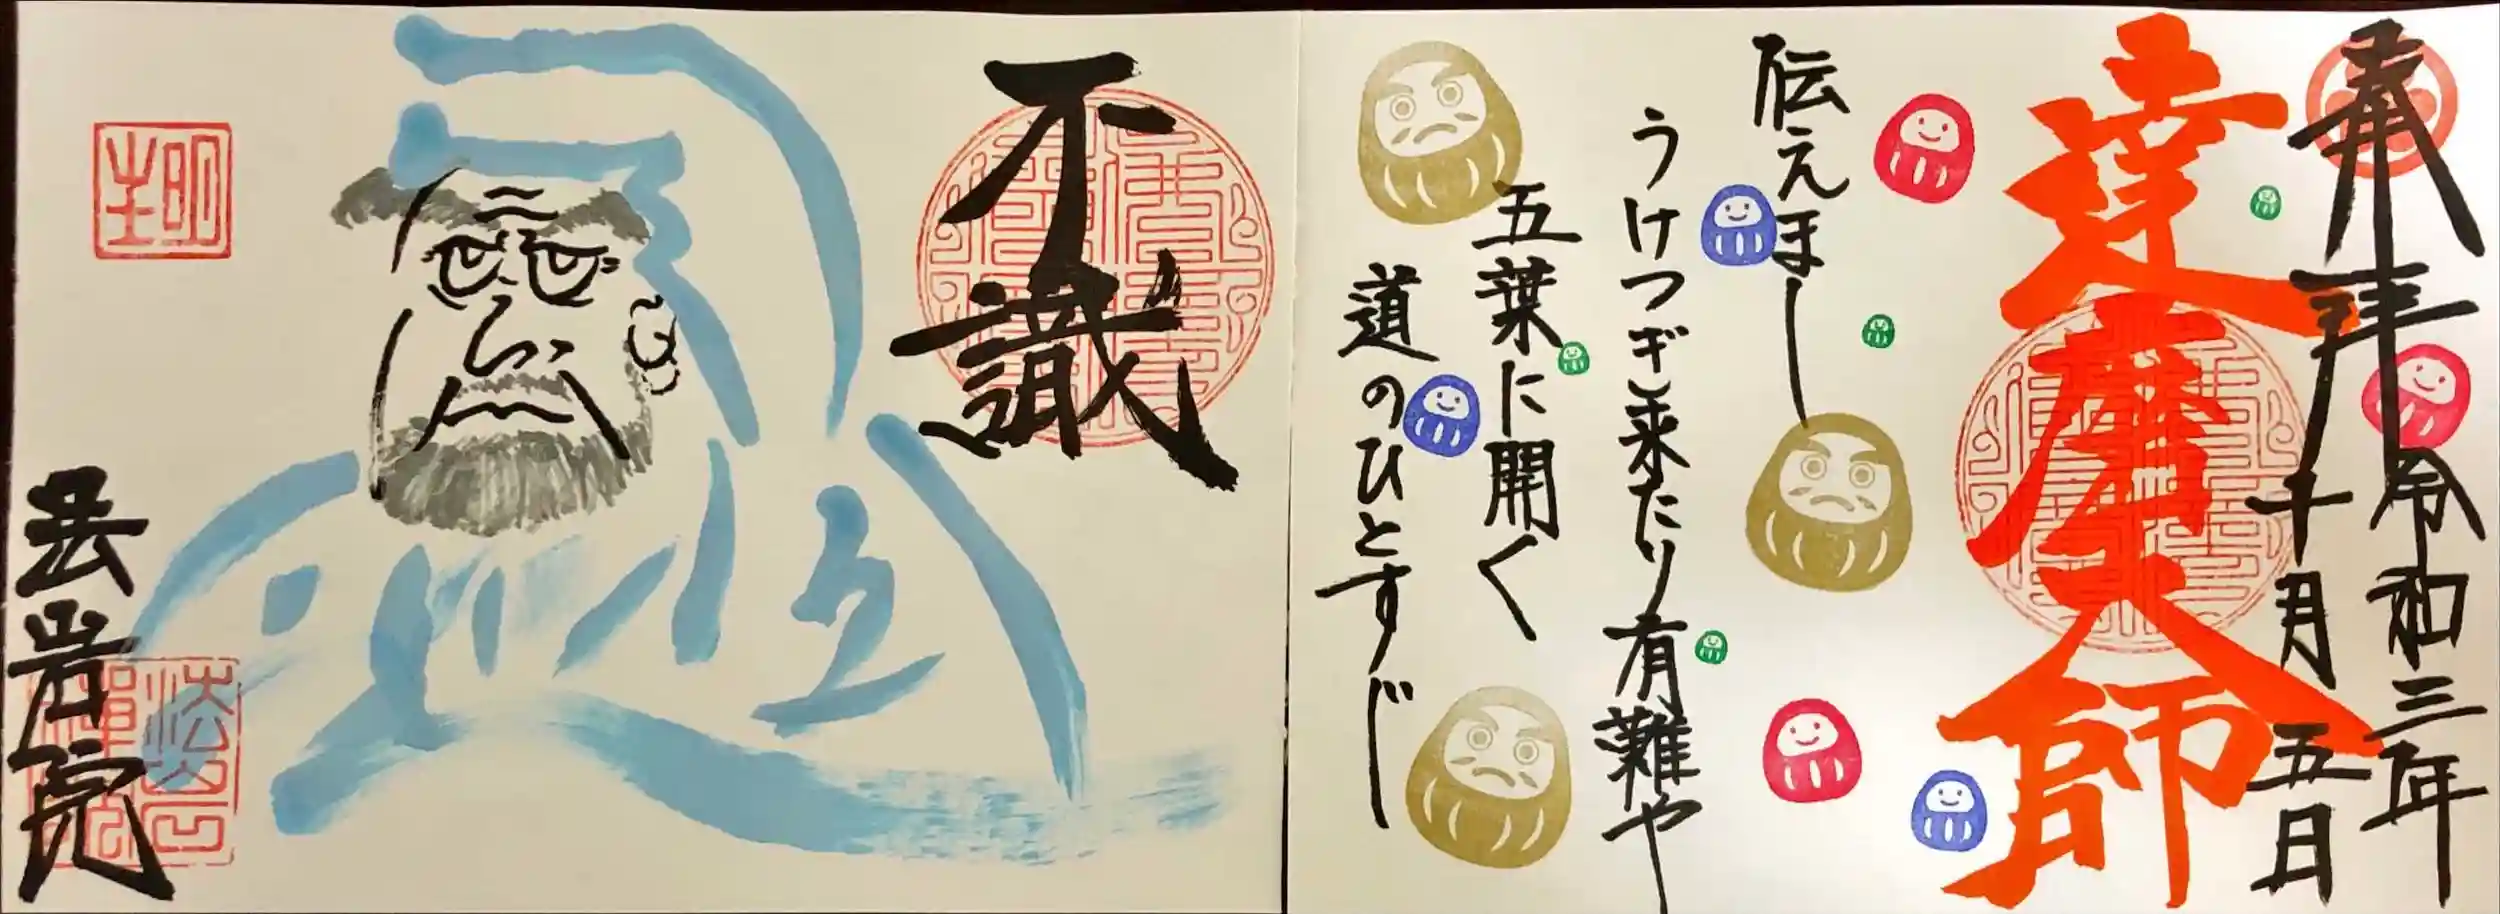 奉拝
令和三年
十月五日
達磨大師
伝えまし
うけつぎ来たり有難や
五葉に開く
道のひとすじ
不識
雲岩院